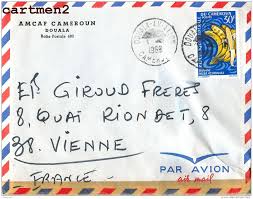 cartmen2
AMCAF CAMEROUN
DOUALA
Boîte Postale
1968
30F
Ets GIROUD FRERES
8, QUAI RIONDET, 8
38. VIENNE
FRANCE
PAR AVION
air mail